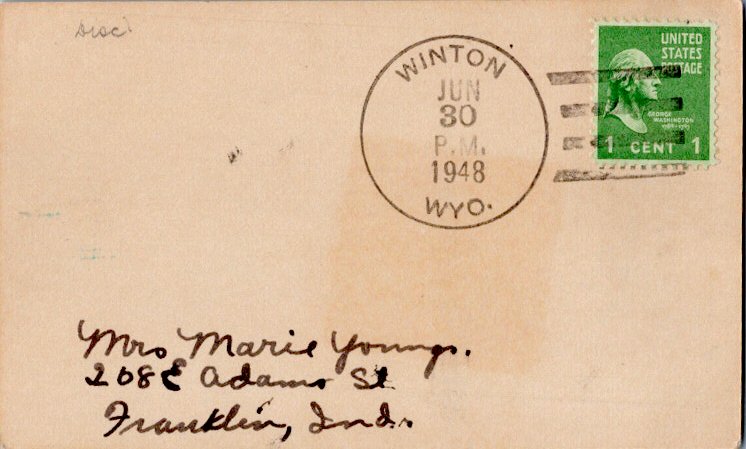 WINTON
JUN
30
P.M.
1948
WYO.
UNITED
STATES
POSTAGE
GEORGE
WASHINGTON
1 CENT 1
Mrs Marie Youngs.
208 E Adams St
Franklin, Ind.